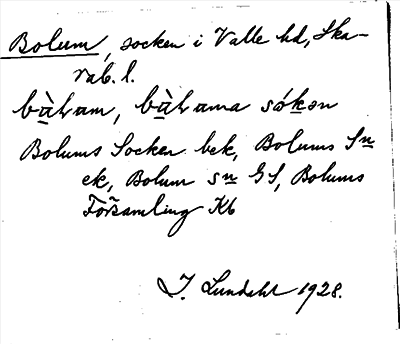 Bolum, socken i Valle hd, Ska-
rab. l.
bàlam, bàlama sókən
Bolums Socken bek, Bolums Sn
ek, Bolum sn GS, Bolums
Församling Kb
I. Lundahl 1928.